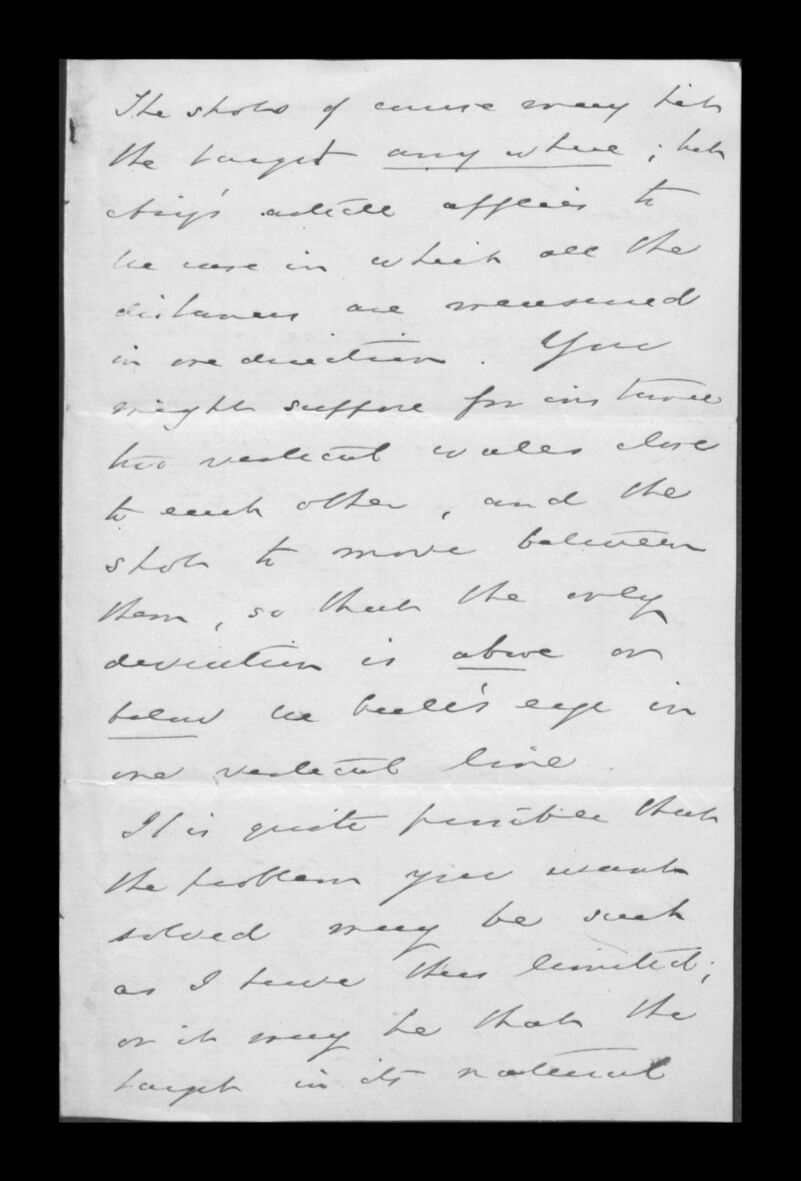 The shots of course may hit
the target any where; but
Airy's article applies to
the case in which all the
distances are measured
in one direction. You
might suppose for instance
two vertical walls close
to each other, and the
shot to move between
them, so that the only
deviation is above or
below the bull's eye in
one vertical line.
It is quite possible that
the problem you want
solved may be such
as I have thus limited;
or it may be that the
target in its natural